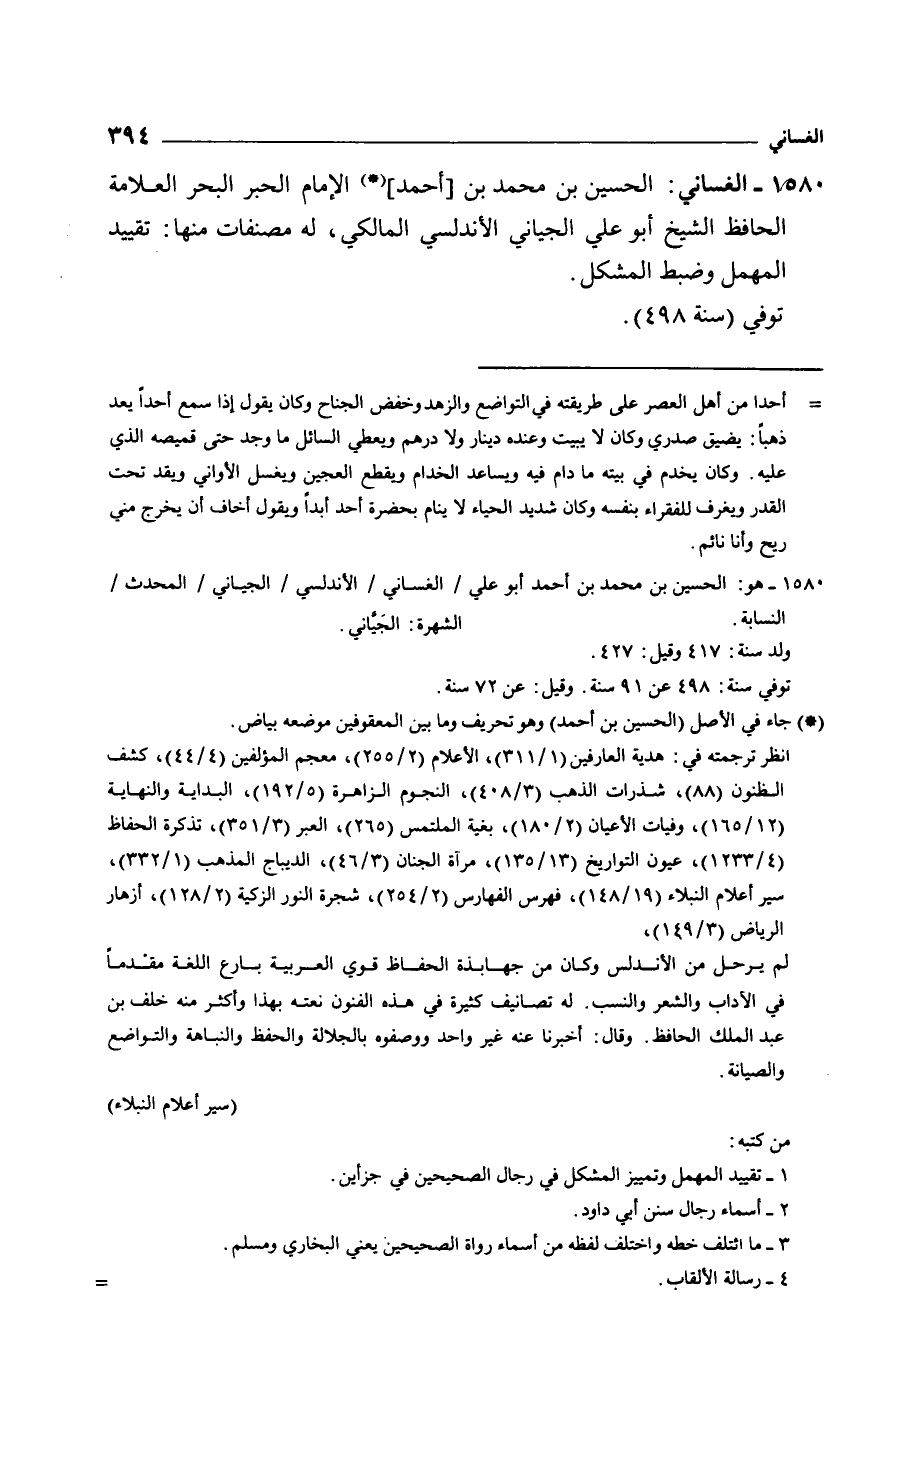 الغساني ٣٩٤
١٥٨٠ - الغساني: الحسين بن محمد بن [أحمد](*) الإمام الحبر البحر العلامة
الحافظ الشيخ أبو علي الجياني الأندلسي المالكي، له مصنفات منها: تقييد
المهمل وضبط المشكل.
توفي (سنة ٤٩٨).
= أحدا من أهل العصر على طريقته في التواضع والزهد وخفض الجناح وكان يقول إذا سمع أحداً يعد
ذهباً: يضيق صدري وكان لا يبيت وعنده دينار ولا درهم ويعطي السائل ما وجد حتى قميصه الذي
عليه. وكان يخدم في بيته ما دام فيه ويساعد الخدام ويقطع العجين ويغسل الأواني ويقد تحت
القدر ويغرف للفقراء بنفسه وكان شديد الحياء لا ينام بحضرة أحد أبداً ويقول أخاف أن يخرج مني
ريح وأنا نائم.
١٥٨٠ - هو: الحسين بن محمد بن أحمد أبو علي / الغساني / الأندلسي / الجياني / المحدث /
النسابة. الشهرة: الجَيَّاني.
ولد سنة: ٤١٧ وقيل: ٤٢٧.
توفي سنة: ٤٩٨ عن ٩١ سنة. وقيل: عن ٧٢ سنة.
(*) جاء في الأصل (الحسين بن أحمد) وهو تحريف وما بين المعقوفين موضعه بياض.
انظر ترجمته في: هدية العارفين (٣١١/١)، الأعلام (٢٥٥/٢)، معجم المؤلفين (٤٤/٤)، كشف
الظنون (٨٨)، شذرات الذهب (٤٠٨/٣)، النجوم الزاهرة (١٩٢/٥)، البداية والنهاية
(١٦٥/١٢)، وفيات الأعيان (١٨٠/٢)، بغية الملتمس (٢٦٥)، العبر (٣٥١/٣)، تذكرة الحفاظ
(١٢٣٣/٤)، عيون التواريخ (١٣٥/١٣)، مرآة الجنان (٤٦/٣)، الديباج المذهب (٣٣٢/١)،
سير أعلام النبلاء (١٤٨/١٩)، فهرس الفهارس (٢٥٤/٢)، شجرة النور الزكية (١٢٨/٢)، أزهار
الرياض (١٤٩/٣)،
لم يرحل من الأندلس وكان من جهابذة الحفاظ قوي العربية بارع اللغة مقدماً
في الآداب والشعر والنسب. له تصانيف كثيرة في هذه الفنون نعته بهذا وأكثر منه خلف بن
عبد الملك الحافظ. وقال: أخبرنا عنه غير واحد ووصفوه بالجلالة والحفظ والنباهة والتواضع
والصيانة.
(سير أعلام النبلاء)
من كتبه:
١ - تقييد المهمل وتمييز المشكل في رجال الصحيحين في جزأين.
٢ - أسماء رجال سنن أبي داود.
٣ - ما ائتلف خطه واختلف لفظه من أسماء رواة الصحيحين يعني البخاري ومسلم.
٤ - رسالة الألقاب. =